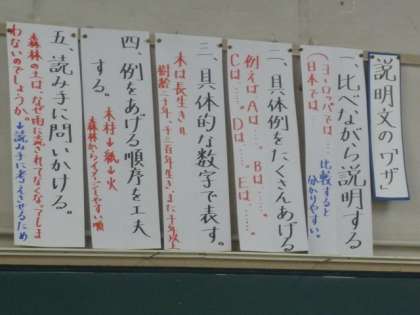 説明文の「ワザ」
一、比べながら説明する
(ヨーロッパでは…
日本では…
比較すると
分かりやすい。
二、具体例をたくさんあげる
例えばAは……。Bは……。
Cは……。Dは……。Eは……。
三、具体的な数字で表す。
木は長生き。
四、例をあげる順序を工夫
する。
木材→紙→火
五、読み手に問いかける。
森林の土は、なぜ雨に流されてなくなってしま
わないのでしょうか。→読み手に考えさせるため